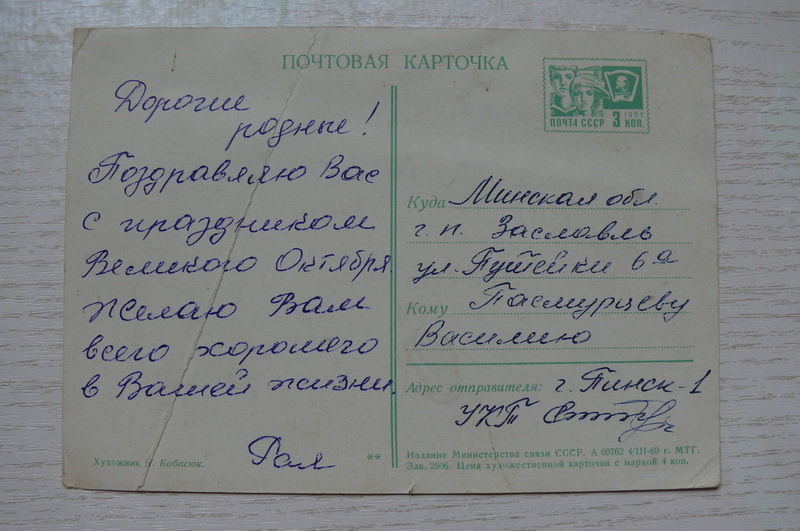 ПОЧТОВАЯ КАРТОЧКА
ПОЧТА СССР 3 КОП.
1966
Дорогие
родные!
Поздравляю Вас
с праздником
Великого Октября.
Желаю Вам
всего хорошего
в Вашей жизни.
Рая
Художник Н. Бабасюк.
**
Куда Минская обл.
г. п. Заславль
ул. Путейки 6а
Кому Пасмурцеву
Василию
Адрес отправителя: г. Пинск-1
УКТ
Издание Министерства связи СССР. А 09762 4/III-69 г. МТГ.
Зак. 2506. Цена художественной карточки с маркой 4 коп.